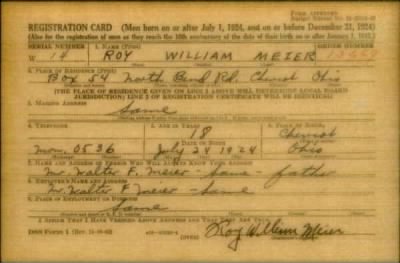 REGISTRATION CARD (Men born on or after July 1, 1924, and on or before December 31, 1924)
(Also for the registration of men as they reach the 18th anniversary of the date of their birth on or after January 1, 1925.)
SERIAL NUMBER 1. NAME (Print) ORDER NUMBER
W 14 ROY WILLIAM MEIER
2. PLACE OF RESIDENCE (Print)
Box 54 North Bend Rd. Cheviot Ohio
[THE PLACE OF RESIDENCE GIVEN ON LINE 2 ABOVE WILL DETERMINE LOCAL BOARD
JURISDICTION; LINE 2 OF REGISTRATION CERTIFICATE WILL BE IDENTICAL]
3. MAILING ADDRESS
Same
4. TELEPHONE 5. AGE IN YEARS 6. PLACE OF BIRTH
18 Cheviot
DATE OF BIRTH
Mon. 0536 July 24 1924 Ohio
7. NAME AND ADDRESS OF PERSON WHO WILL ALWAYS KNOW YOUR ADDRESS
Mr. Walter F. Meier - Same - father
8. EMPLOYER'S NAME AND ADDRESS
Mr. Walter F. Meier - Same
9. PLACE OF EMPLOYMENT OR BUSINESS
Same
I AFFIRM THAT I HAVE VERIFIED ABOVE ANSWERS AND THAT THEY ARE TRUE.
DSS Form 1 (OVER) Roy William Meier